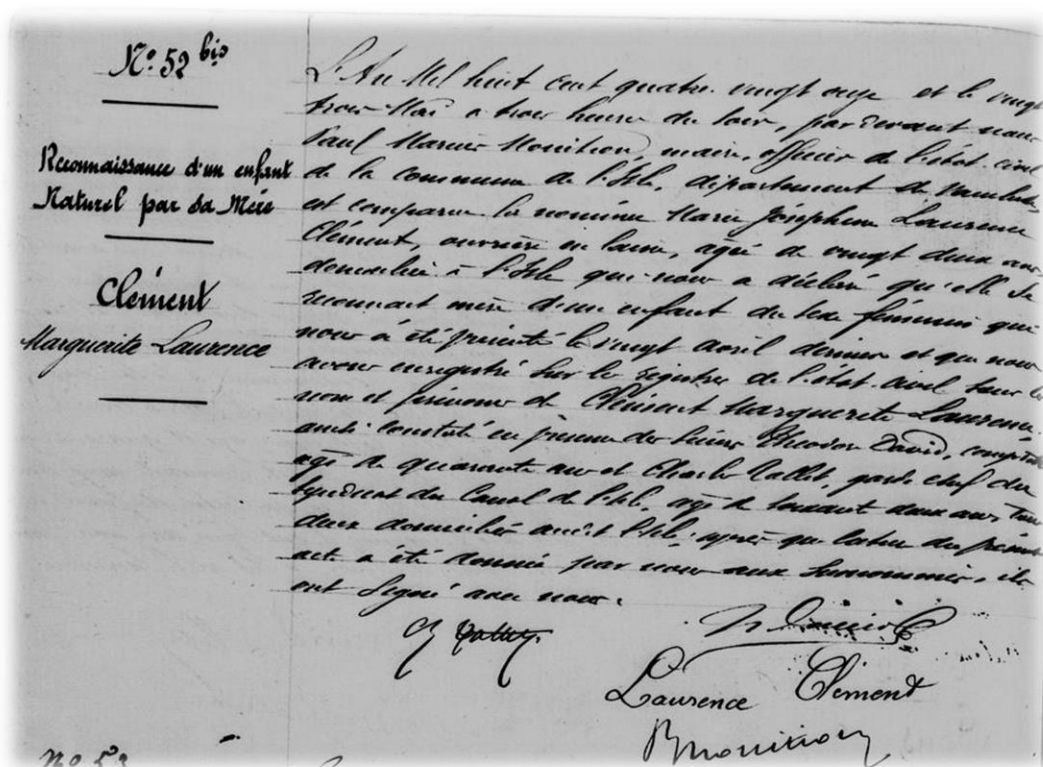 N° 52 bis
Reconnaissance d'un enfant
Naturel par sa Mère
Clément
Marguerite Laurence
L'An Mil huit cent quatre vingt onze et le vingt
trois Mai a trois heures du soir, par devant nous
Paul Monition, maire, officier de l'état civil
de la commune de l'Isle, département de Vaucluse,
est comparue la nommée Marie Joséphine Laurence
Clément, ouvrière en laine, agée de vingt deux ans
domiciliée à l'Isle qui nous a déclaré qu'elle se
reconnait mère d'un enfant du sexe féminin qui
nous à été présenté le vingt avril dernier et que nous
avons enregistré sur les registres de l'état civil sous les
nom et prénoms de Clément Marguerite Laurence.
ainsi constaté en présence des sieurs Théodore David, comptable
agé de quarante ans et Charles Tallet, garde chef du
Syndicat du Canal de l'Isle, agé de soixante deux ans, tous
deux domiciliés audit l'Isle; après que lecture du présent
acte a été donnée par nous aux susnommés, ils
ont signé avec nous.
Ch Tallet
Laurence Clément
P Monition
N° 53